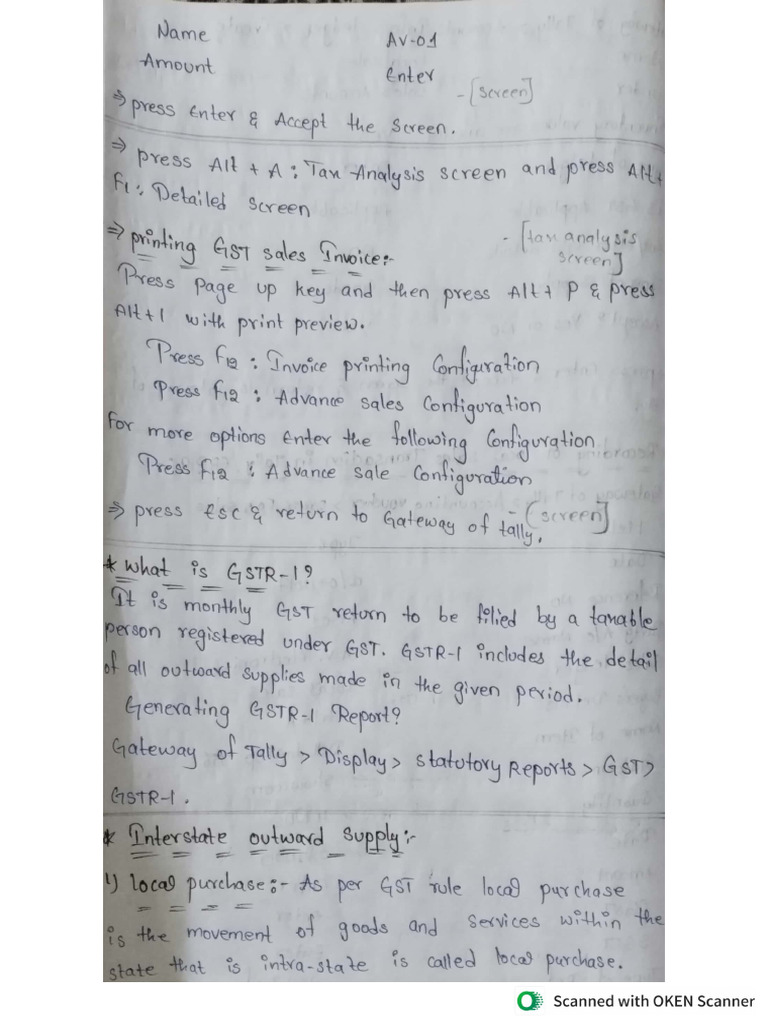 Name AV-01
Amount Enter
-[screen]
⇒ press Enter & Accept the screen.
⇒ press Alt + A : Tax Analysis screen and press Alt+
F1 : Detailed screen
- [tax analysis
screen]
⇒ printing GST sales Invoice:-
Press page up key and then press Alt + P & press
Alt+I with print preview.
Press F12 : Invoice printing Configuration
Press F12 : Advance sales Configuration
For more options Enter the following Configuration
Press F12 : Advance sale Configuration
- [screen]
⇒ press Esc & return to Gateway of tally.
* What is GSTR-1?
It is monthly GST return to be filied by a taxable
person registered under GST. GSTR-1 includes the detail
of all outward supplies made in the given period.
Generating GSTR-1 Report?
Gateway of Tally > Display > Statutory Reports > GST >
GSTR-1.
* Interstate outward supply:-
1) local purchase:- As per GST rule local purchase
is the movement of goods and services within the
state that is intra-state is called local purchase.
Scanned with OKEN Scanner